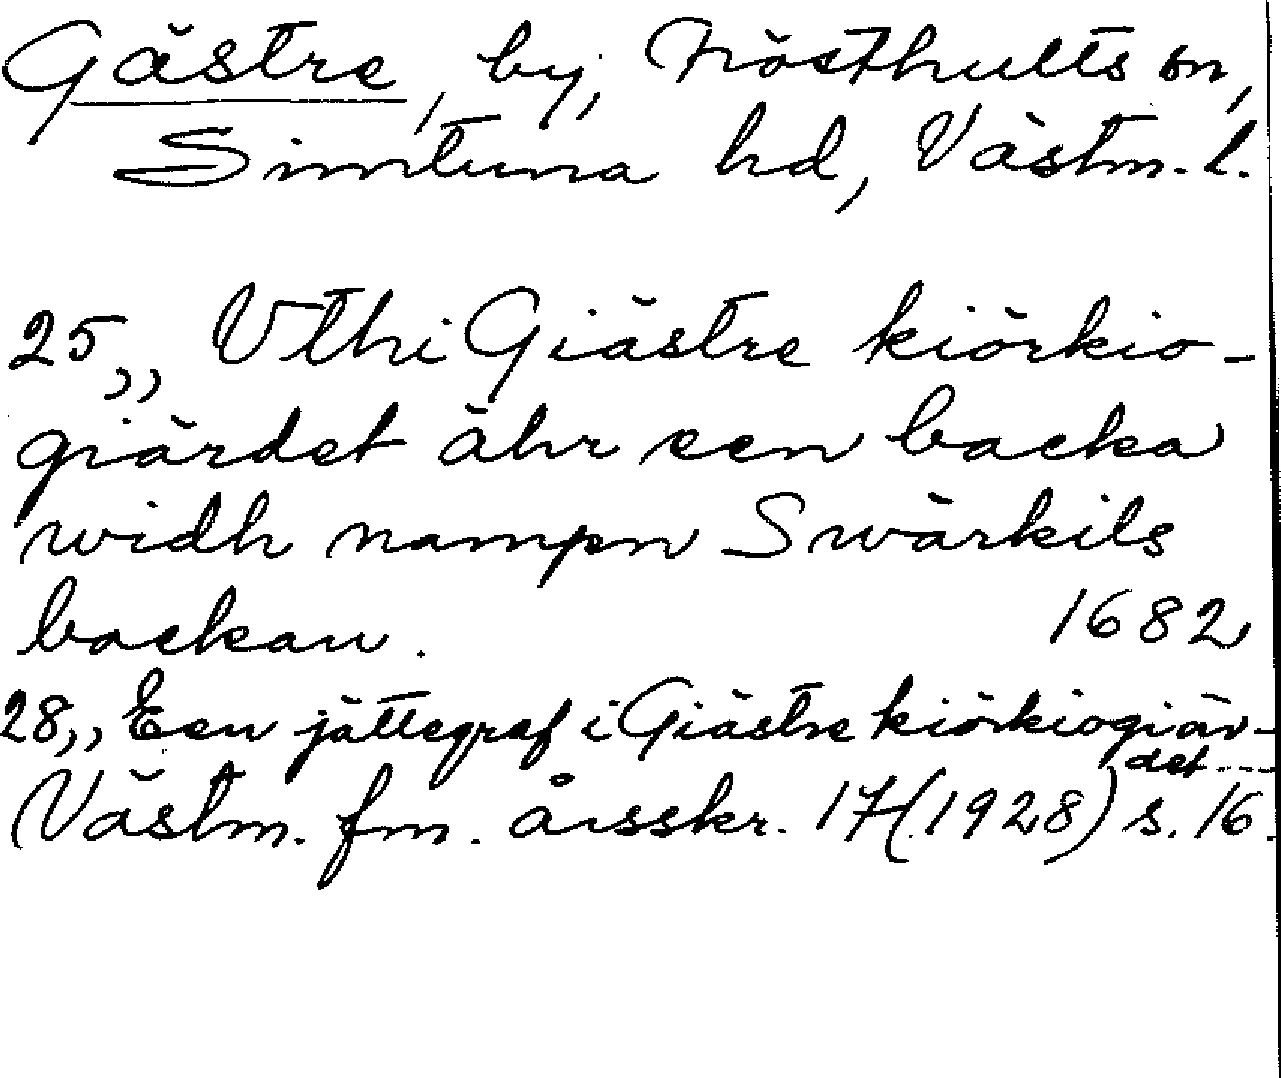 Gästre, by, Frösthults sn,
Simtuna hd, Västm. l.
25,, Vthi Giästre kiörkio-
giärdet ähr een backa
widh nampn Swärkils
backan. 1682
28,, Een jättegraf i Giästre kiörkiogiär-
det ---
Västm. fm. årsskr. 17 (1928) s. 16.